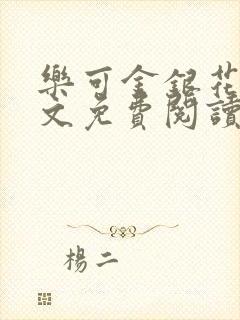 樂可金銀花
文免費閱讀
楊二